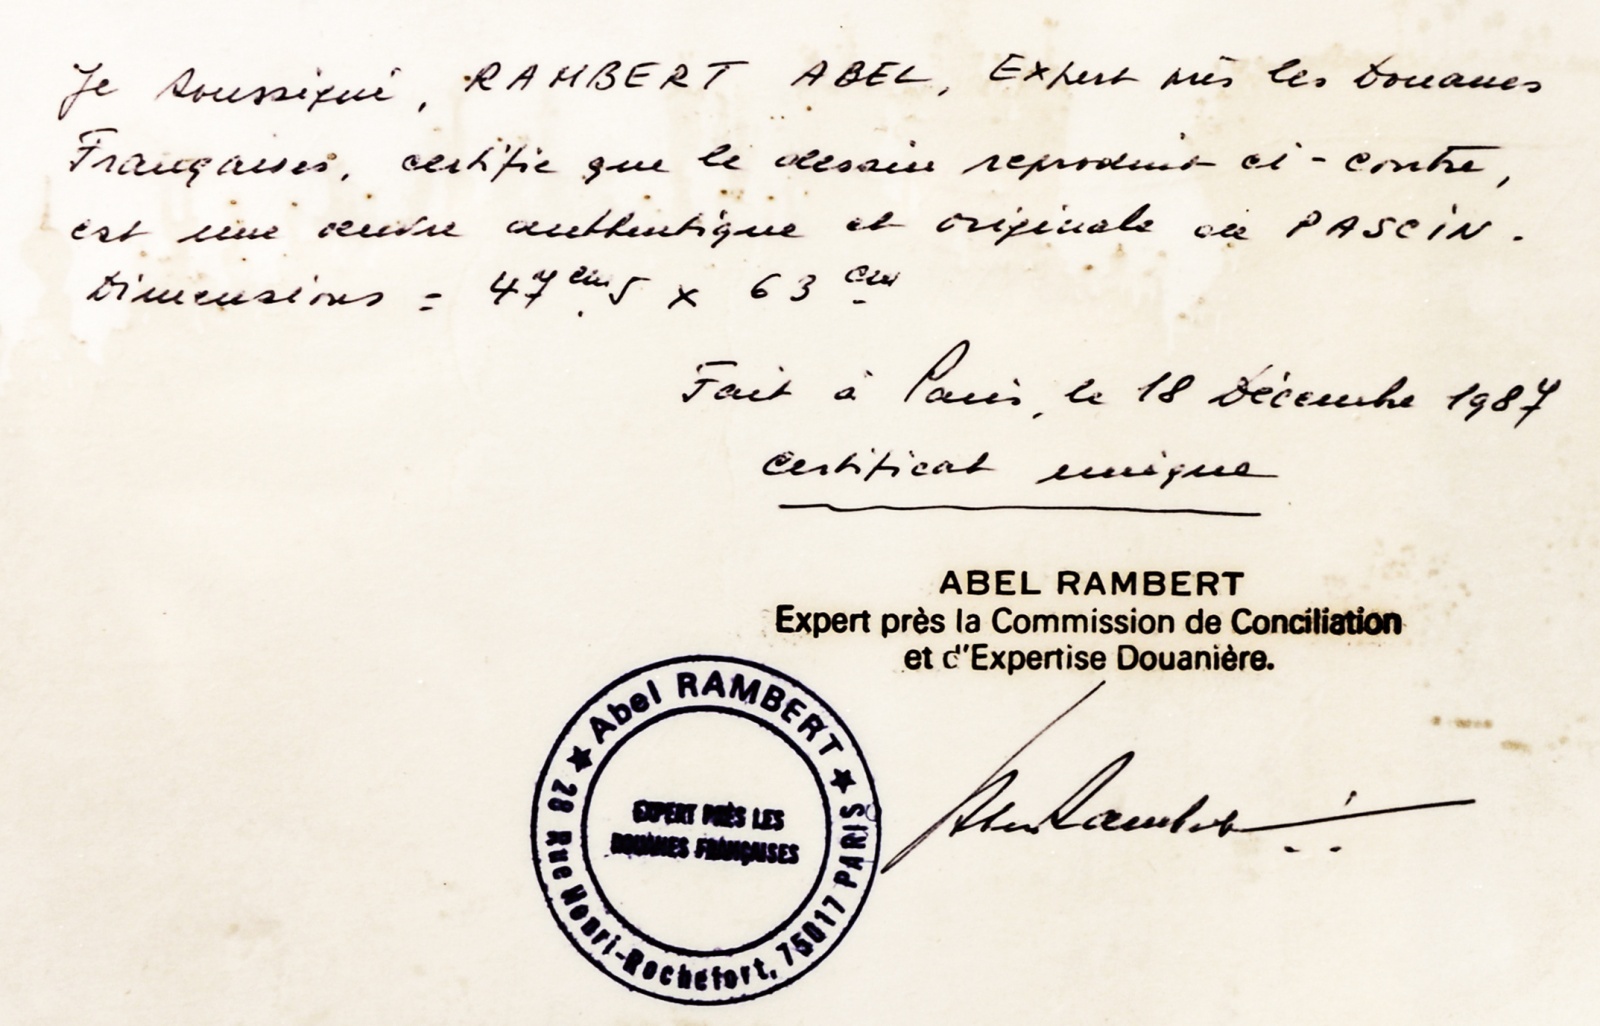 Je soussigné, RAMBERT ABEL, Expert près les Douanes
Françaises, certifie que le dessin reproduit ci-contre,
est une œuvre authentique et originale de PASCIN.
Dimensions = 47 cm 5 x 63 cm
Fait à Paris, le 18 Décembre 1987
certificat unique
ABEL RAMBERT
Expert près la Commission de Conciliation
et d'Expertise Douanière.
★ Abel RAMBERT ★
28 Rue Henri-Rochefort, 75017 PARIS
EXPERT PRÈS LES
DOUANES FRANÇAISES
Abel Rambert